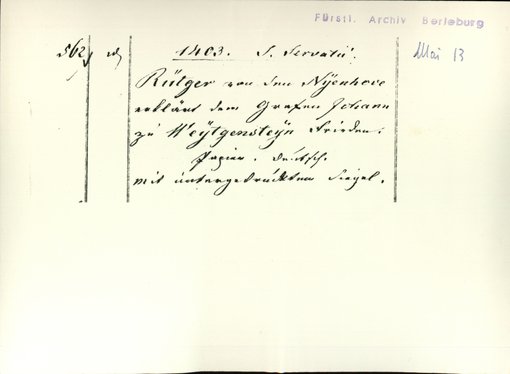 Fürstl. Archiv Berleburg
562 1403. S. Servatii. Mai 13
Rütger von den Nyenhove
erklärt dem Grafen Johann
zu Weytgensteyn Frieden.
Papier. Deutsch.
mit untergedrücktem Siegel.